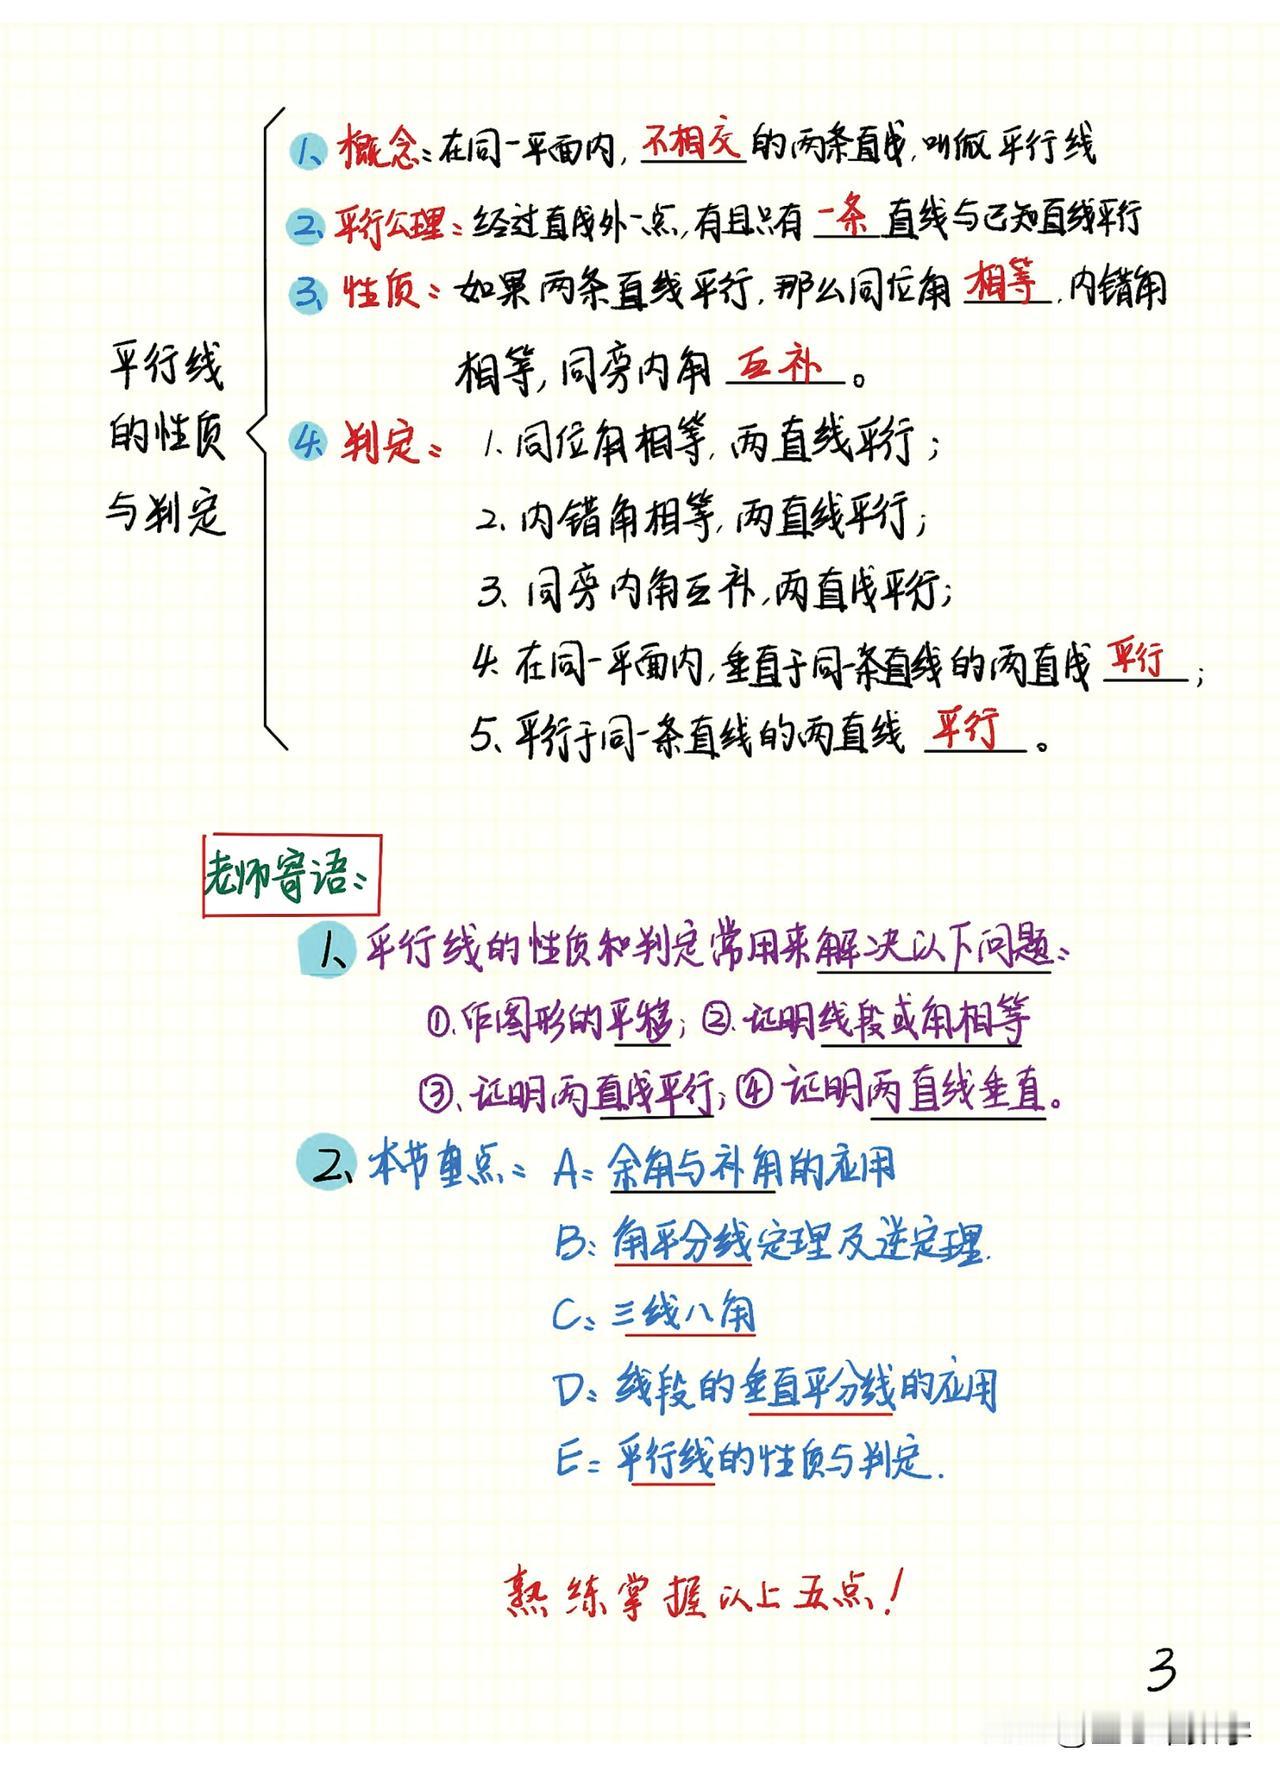 1、概念：在同一平面内，不相交的两条直线，叫做平行线
2、平行公理：经过直线外一点，有且只有一条直线与已知直线平行
3、性质：如果两条直线平行，那么同位角相等，内错角
相等，同旁内角互补。
平行线
的性质
与判定
4、判定：1、同位角相等，两直线平行；
2、内错角相等，两直线平行；
3、同旁内角互补，两直线平行；
4、在同一平面内，垂直于同一条直线的两直线平行；
5、平行于同一条直线的两直线平行。
老师寄语：
1、平行线的性质和判定常用来解决以下问题：
①、作图形的平移；②、证明线段或角相等
③、证明两直线平行；④证明两直线垂直。
2、本节重点：A：余角与补角的应用
B：角平分线定理及逆定理.
C：三线八角
D：线段的垂直平分线的应用
E：平行线的性质与判定.
熟练掌握以上五点！
3